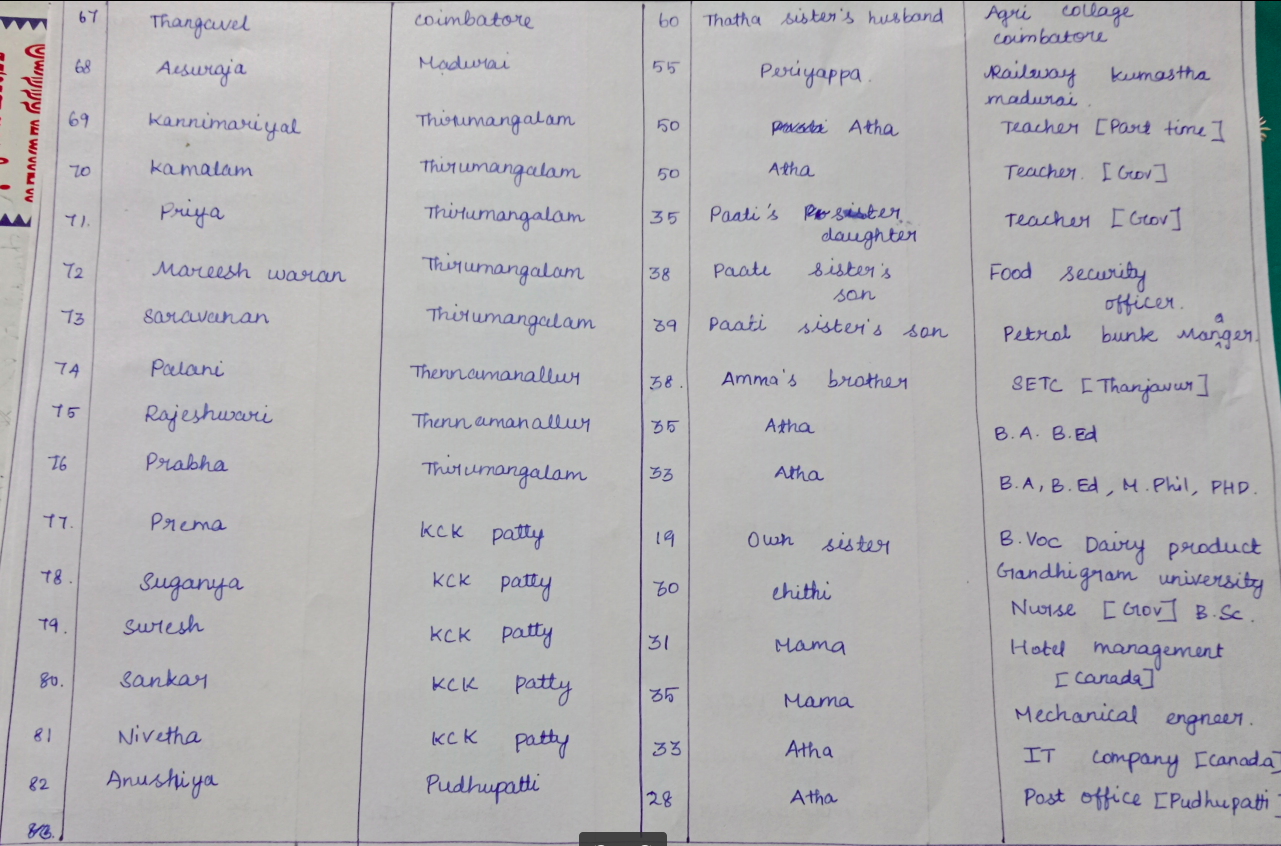 67 Thangavel coimbatore 60 Thatha sister's husband Agri collage
coimbatore
68 Aesuraja Madurai 55 Periyappa. Railway kumastha
madurai.
69 kannimariyal Thirumangalam 50 Atha Teacher [Part time]
70 kamalam Thirumangalam 50 Atha Teacher. [Gov]
71. Priya Thirumangalam 35 Paati's sister Teacher [Gov]
daughter
72 Mareesh waran Thirumangalam 38 Paati sister's Food security
son officer.
73 Saravanan Thirumangalam 39 Paati sister's son Petrol bunk Manager.
74 Palani Thennamanallur 38. Amma's brother SETC [Thanjavur]
75 Rajeshwari Thennamanallur 35 Atha B.A. B.Ed
76 Prabha Thirumangalam 33 Atha B.A, B.Ed, M.Phil, PHD.
77. Prema KCK patty 19 Own sister B.Voc Dairy product
Gandhigram university
78. Suganya KCK patty 30 chithi Nurse [Gov] B.Sc.
79. Suresh KCK patty 31 Mama Hotel management
[Canada]
80. Sankar KCK patty 35 Mama Mechanical engneer.
81 Nivetha KCK patty 33 Atha IT company [canada]
82 Anushiya Pudhupatti 28 Atha Post office [Pudhupatti]
83.